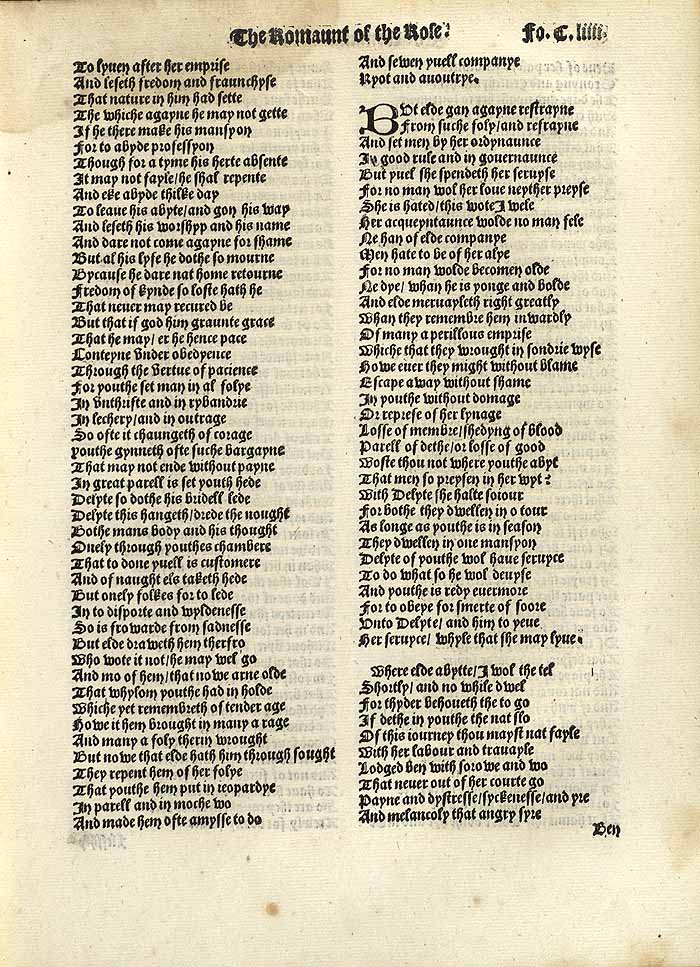 The Romaunt of the Rose. Fo. C. liiii.
To lyuen after her emprise
And leseth fredom and fraunchyse
That nature in him had sette
The whiche agayne he may not gette
If he there make his mansyon
For to abyde professyon
Though for a tyme his herte absente
It may not fayle/he shal repente
And eke abyde thilke day
To leaue his abyte/and gon his way
And leseth his worshyp and his name
And dare not come agayne for shame
But al his lyfe he dothe so mourne
Bycause he dare nat home retourne
Fredom of kynde so loste hath he
That neuer may recured be
But that if god him graunte grace
That he may/ er he hence pace
Conteyne vnder obedyence
Through the vertue of pacience
For youthe set man in al folye
In vnthrifte and in rybandrie
In lechery/and in outrage
So ofte it chaungeth of corage
youthe gynneth ofte suche bargayne
That may not ende without payne
In great parell is set youth hede
Delyte so dothe his bridell lede
Delyte this hangeth/drede the nought
Bothe mans body and his thought
Onely through youthes chambere
That to done yuell is customere
And of naught els taketh hede
But onely folkes for to lede
In to disporte and wyldenesse
So is frowarde from sadnesse
But elde draweth hem therfro
Who wote it not/he may wel go
And mo of hem/that nowe arne olde
That whylom youthe had in holde
Whiche yet remembreth of tender age
Howe it hem brought in many a rage
And many a foly therin wrought
But nowe that elde hath him through sought
They repent hem of her folye
That youthe hem put in ieopardye
In parell and in moche wo
And made hem ofte amysse to do
And sewen yuell companye
Ryot and auoutrye.
BVt elde gan agayne restrayne
From suche foly/and refrayne
And set men by her ordynaunce
In good rule and in gouernaunce
But yuel she spendeth her seruyse
For no man wol her loue neyther preyse
She is hated/this wote I wele
Her acqueyntaunce wolde no man fele
Ne han of elde companye
Men hate to be of her alye
For no man wolde becomen olde
Ne dye/ whan he is yonge and bolde
And elde meruayleth right greatly
Whan they remembre hem inwardly
Of many a perillous emprise
Whiche that they wrought in sondrie wyse
Howe euer they might without blame
Escape away without shame
In youthe without domage
Or reprefe of her lynage
Losse of membre/shedyng of blood
Parell of dethe/or losse of good
Woste thou not where youthe abyt
That men so preysen in her wyt?
With Delyte she halte soiour
For bothe they dwellen in o tour
As longe as youthe is in season
They dwellen in one mansyon
Delyte of youthe wol haue seruyce
To do what so he wol deuyse
And youthe is redy euermore
For to obeye for smerte of soore
Vnto Delyte/ and him to yeue
Her seruyce/ whyle that she may lyue.
Where elde abytte/I wol the tel
Shortly/ and no while dwel
For thyder behoueth the to go
If dethe in youthe the nat slo
Of this iourney thou mayst nat fayle
With her labour and trauayle
Lodged ben with sorowe and wo
That neuer out of her courte go
Payne and dystresse/syckenesse/and yre
And melancoly that angry syre
Ben